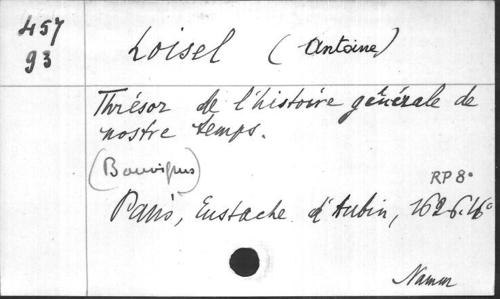 457
93
Loisel (Antoine)
Thrésor de l'histoire générale de
nostre temps.
(Bouvignes)
RP 8°
Paris, Eustache d'Aubin, 1626. 16°
Namur